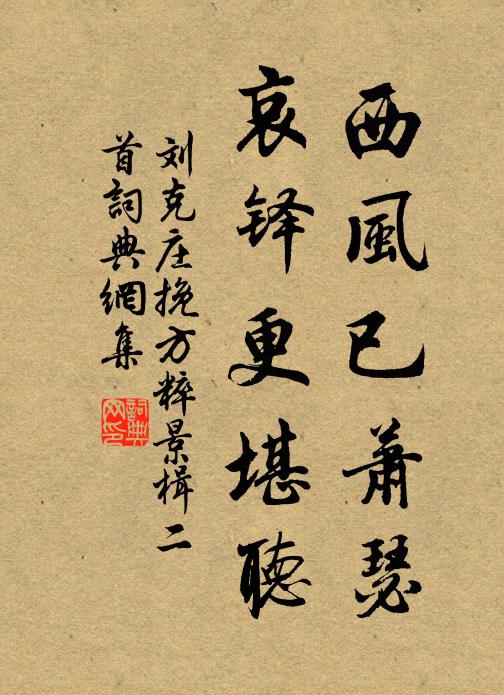 西風已蕭瑟
哀铎更堪聽
刘克庄挽方粹景楫二
首詞典網集
詞典
网印